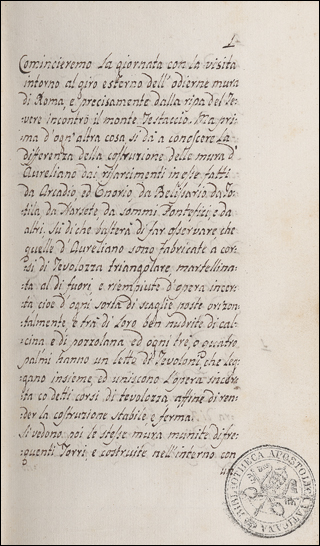 1
Comincieremo la giornata con la visita
intorno al giro esterno dell'odierne mura
di Roma, e precisamente dalla ripa del Te-
vere incontrò il monte Testaccio. Ma pri-
ma d'ogn'altra cosa si dà a conoscere la
differenza della costruzione delle mura d'
Aureliano dai risarcimenti in esse fatti
da Arcadio, ed Onorio, da Belisario, da To-
tila, da Narsete, da sommi Pontefici, e da
altri. Su di che basterà di far osservare, che
quelle d'Aureliano sono fabricate a cor-
si di Tevolozza triangolare, martellina-
ta al di fuori, e riempiute d'opera incer-
ta cioè d'ogni sorta di scaglie poste orizon-
talmente, e trà di loro ben nudrite di cal-
cina e di pozzolana, ed ogni tre, o quatro
palmi hanno un letto di Tevoloni, che le-
gano insieme, ed uniscono l'opera incer-
ta co detti corsi di tevolozza affine di ren-
der la costruzione stabile e ferma.
Si vedono poi le stesse mura munite di fre-
quenti Torri, e costruite nell'interno con
un
BIBLIOTHECA APOSTOLICA VATICANA